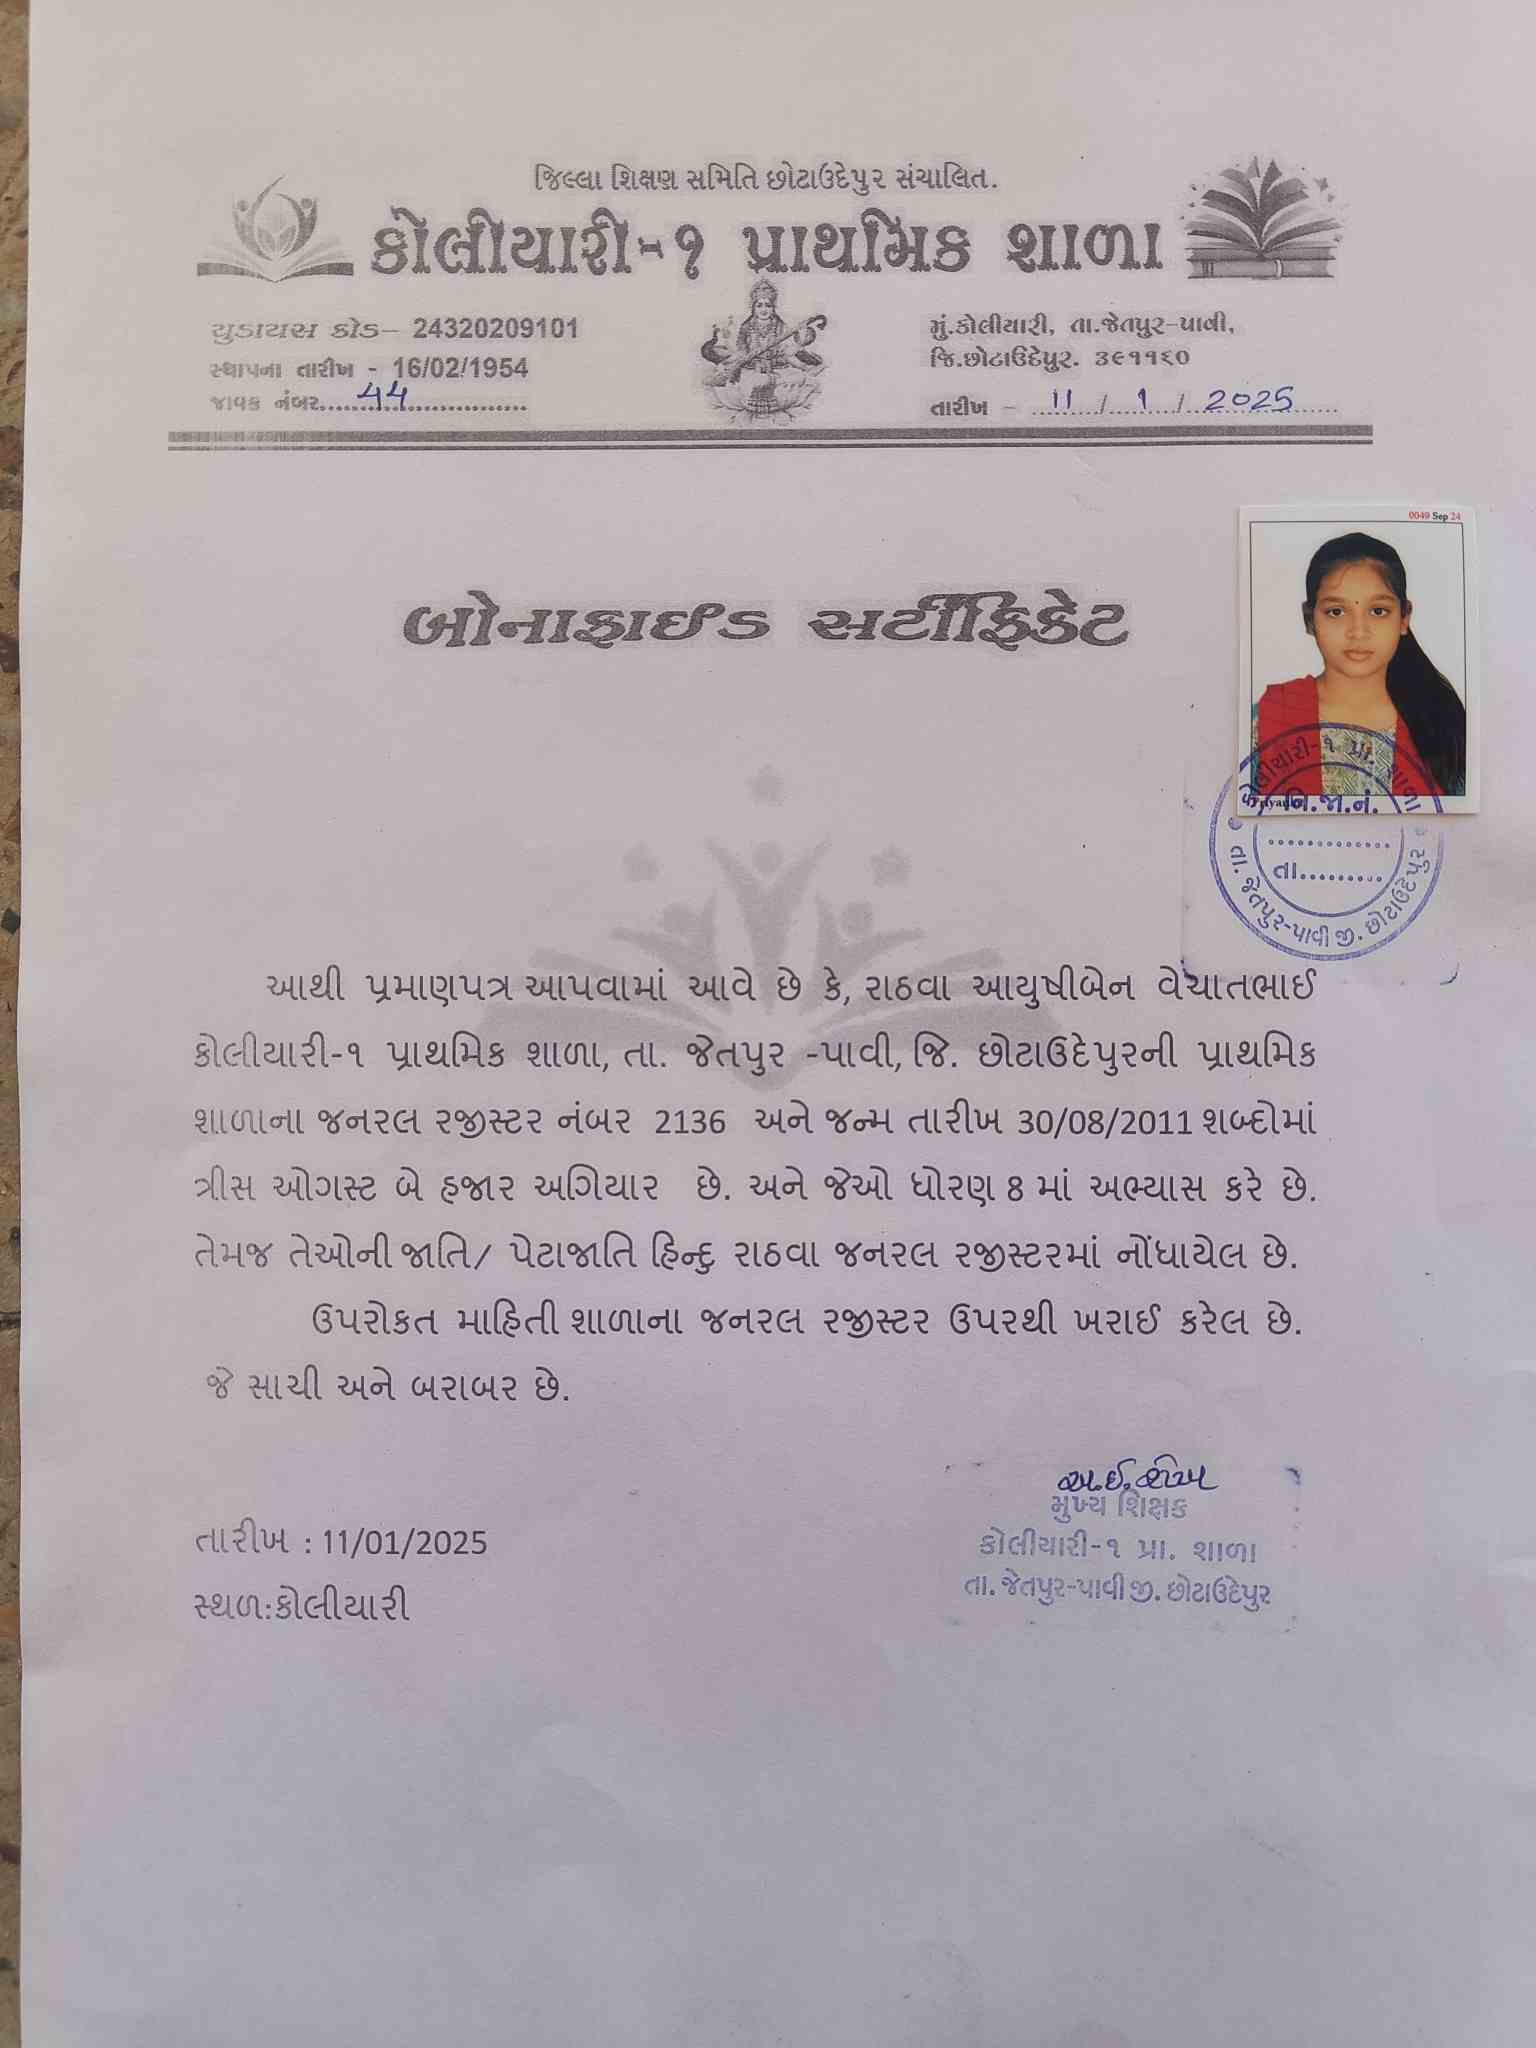 જિલ્લા શિક્ષણ સમિતિ છોટાઉદેપુર સંચાલિત.
કોલીયારી-૧ પ્રાથમિક શાળા
યુડાયસ કોડ– 24320209101
સ્થાપના તારીખ - 16/02/1954
જાવક નંબર......44......
મું.કોલીયારી, તા.જેતપુર-પાવી,
જિ.છોટાઉદેપુર. ૩૯૧૧૬૦
તારીખ – 11 / 1 / 2025
0049 Sep 24
બોનાફાઈડ સર્ટીફિકેટ
કોલીયારી-૧ પ્રા. શાળા
નિ.જા.નં.
.............
તા.........
તા. જેતપુર-પાવી જી. છોટાઉદેપુર
આથી પ્રમાણપત્ર આપવામાં આવે છે કે, રાઠવા આયુષીબેન વેચાતભાઈ
કોલીયારી-૧ પ્રાથમિક શાળા, તા. જેતપુર -પાવી, જિ. છોટાઉદેપુરની પ્રાથમિક
શાળાના જનરલ રજીસ્ટર નંબર 2136 અને જન્મ તારીખ 30/08/2011 શબ્દોમાં
ત્રીસ ઓગસ્ટ બે હજાર અગિયાર છે. અને જેઓ ધોરણ 8 માં અભ્યાસ કરે છે.
તેમજ તેઓની જાતિ/ પેટાજાતિ હિન્દુ રાઠવા જનરલ રજીસ્ટરમાં નોંધાયેલ છે.
ઉપરોકત માહિતી શાળાના જનરલ રજીસ્ટર ઉપરથી ખરાઈ કરેલ છે.
જે સાચી અને બરાબર છે.
મુખ્ય શિક્ષક
કોલીયારી-૧ પ્રા. શાળા
તા. જેતપુર-પાવી જી. છોટાઉદેપુર
તારીખ : 11/01/2025
સ્થળ:કોલીયારી